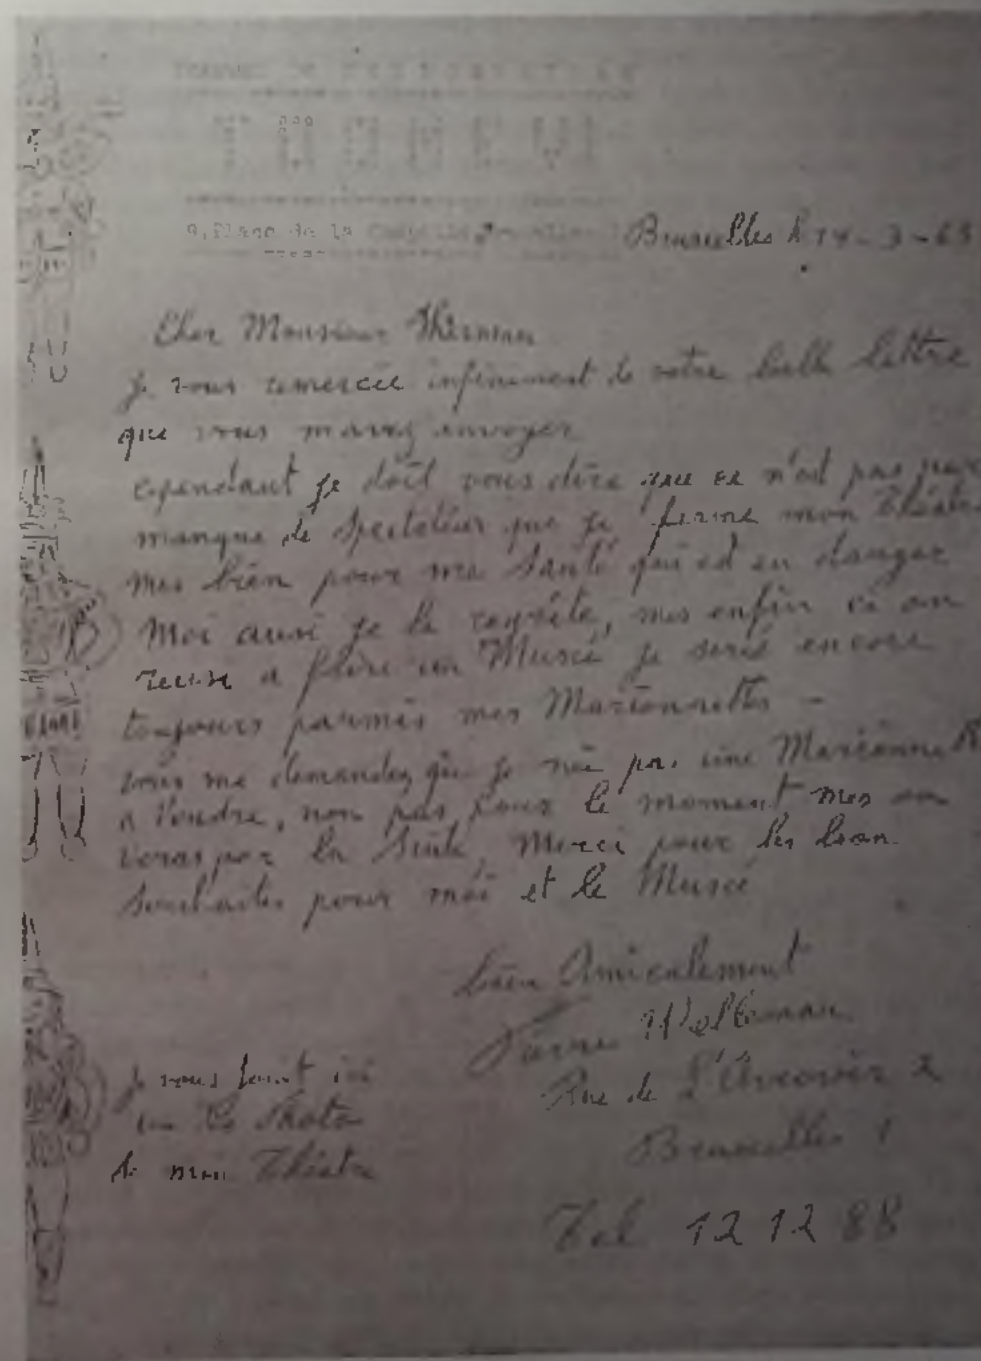 9, Place de la Chapelle,
Bruxelles le 14-3-63
Cher Monsieur
je vous remercie infiniment de votre belle lettre
que vous mavez envoyer
cependant je doit vous dire que ce n'est pas par
manque de spectateur que je ferme mon Théâtre
mes bien pour ma Santé qui est en danger
Moi aussi je le regrète, mes enfin ci on
reusi a faire un Musé je seré encore
toujours parmis mes Marionnettes -
vous me demandez que je né pas une Marionnette
a vendre, non pas pour le moment mes on
veras par la Suite, Merci pour les bon
souhaites pour moi et le Musé
bien Amicalement
Welleman
Rue de L'Avenir 2
Bruxelles 1
Tel 12 12 88
Je vous joint ici
une Photo
de mon Théâtre